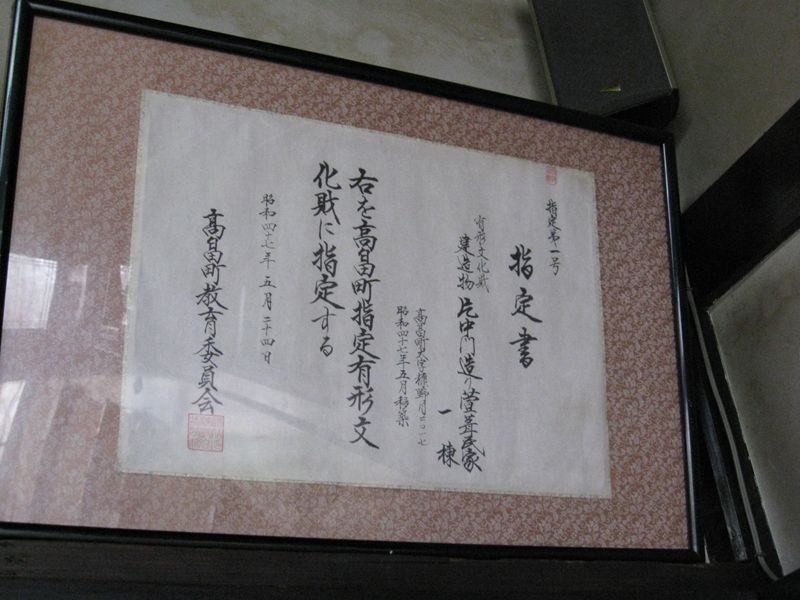 指定第一号
指定書
有形文化財
建造物 片中門造り萱葺民家
一棟
昭和四十七年五月移築
右を高畠町指定有形文
化財に指定する
昭和四十七年五月二十四日
高畠町教育委員会